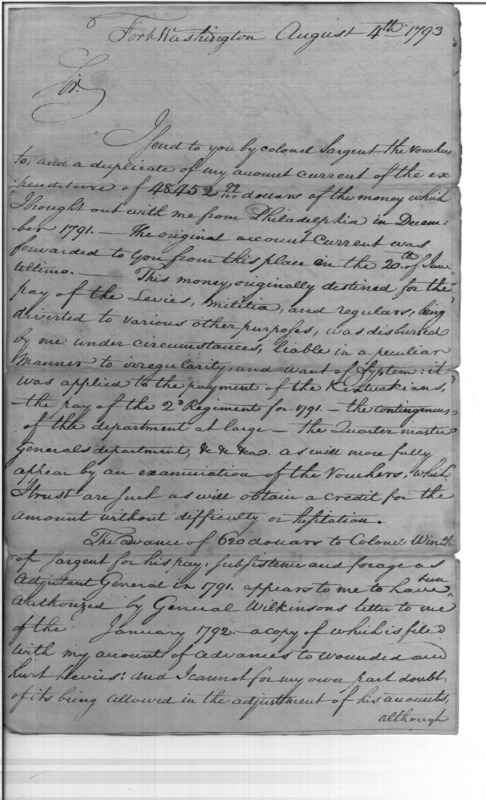 Fort Washington August 4th 1793
Sir.
I send to you by colonel Sargent the Vouchers
to, and a duplicate of my account current of the ex
penditure of 48452 77/100 dollars of the money which
I brought out with me from Philadelphia in Decem-
ber 1791. — The original account current was
forwarded to you from this place on the 20th of June
ultimo. — This money, originally destined for the
pay of the Levies, militia, and regulars, being
diverted to various other purposes, was disbursed
by me under circumstances, liable in a peculiar
manner to irregularity, and want of System: it
was applied to the payment of the Kentuckians,
the pay of the 2d Regiment for 1791 — the contingencies
of the department at large — the Quarter master
Generals department, &c &c &ca. as will more fully
appear by an examination of the Vouchers, which
I trust are such as will obtain a credit for the
amount without difficulty or hesitation.
The advance of 620 dollars to Colonel Winth-
op Sargent for his pay, subsistence and forage as
Adjutant General in 1791. appears to me to have been
Authorized by General Wilkinsons letter to me
of the January 1792 — a copy of which is filed
with my accounts of advances to wounded and
hurt Levies: and I cannot for my own part doubt
of its being allowed in the adjustment of his accounts,
although